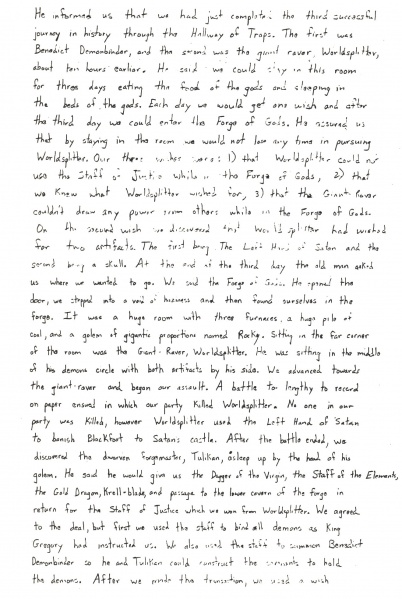 He informed us that we had just completed the third successful
journey in history through the Hallway of Traps. The first was
Benedict Demonbinder, and the second was the giant raver, Worldsplitter,
about ten hours earlier. He said we could stay in this room
for three days eating the food of the gods and sleeping in
the beds of the gods. Each day we would get one wish and after
the third day we could enter the Forge of Gods. He assured us
that by staying in the room we would not lose any time in pursuing
Worldsplitter. Our three wishes were: 1) that Worldsplitter could not
use the Staff of Justice while in the Forge of Gods, 2) that
we Knew what Worldsplitter wished for, 3) that the Giant-Raver
couldn't draw any power from others while in the Forge of Gods.
On the second wish we discovered that Worldsplitter had wished
for two artifacts. The first being The Left Hand of Satan and the
second being a skull. At the end of the third day the old man asked
us where we wanted to go. We said the Forge of Gods. He opened the
door, we stepped into a void of and then found ourselves in the
forge. It was a huge room with three furnaces, a huge pile of
coal, and a golem of gigantic proportions named Rocky. Sitting in the far corner
of the room was the Giant-Raver, Worldsplitter. He was sitting in the middle
of his demons circle with both artifacts by his side. We advanced towards
the giant-raver and began our assault. A battle to lengthy to record
on paper ensued in which our party Killed Worldsplitter. No one in our
party was Killed, however Worldsplitter used the Left Hand of Satan
to banish Blackfoot to Satans castle. After the battle ended, we
discovered the dwarven forgemaster, Tulikan, asleep up by the head of his
golem. He said he would give us the Dagger of the Virgin, the Staff of the Elements,
the Gold Dragon, Krell-blade, and passage to the lower cavern of the forge in
return for the Staff of Justice which we won from Worldsplitter. We agreed
to the deal, but first we used the staff to bind all demons as King
Gregory had instructed us. We also used the staff to summon Benedict
Demonbinder so he and Tulikan could construct the to hold
the demons. After we made the transition, we used a wish